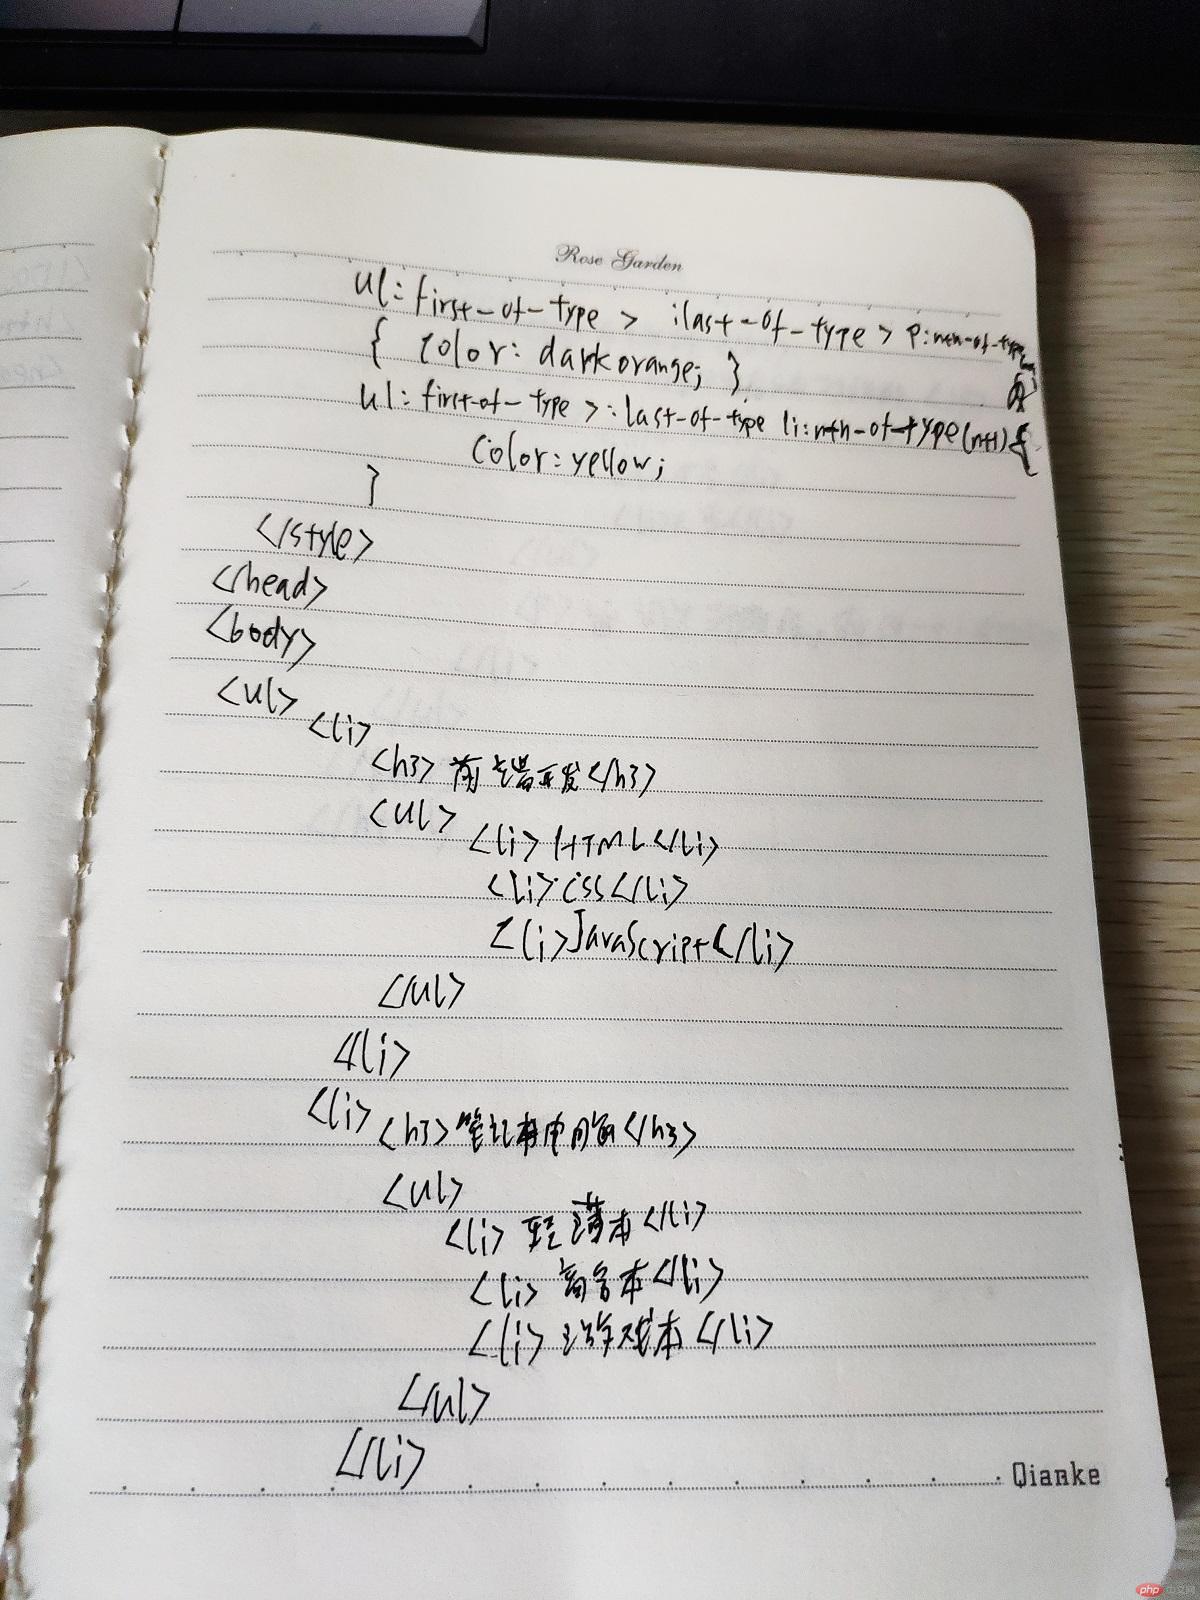 Rose Garden
ul:first-of-type > :last-of-type > p:nth-of-type
{ color: darkorange; }
ul:first-of-type >:last-of-type li:nth-of-type(n+1){
color:yellow;
}
</style>
</head>
<body>
<ul>
<li>
<h3>前端开发</h3>
<ul>
<li>HTML</li>
<li>CSS</li>
<li>JavaScript</li>
</ul>
</li>
<li>
<h3>笔记本电脑</h3>
<ul>
<li>轻薄本</li>
<li>商务本</li>
<li>游戏本</li>
</ul>
</li>
Qianke
php中文网